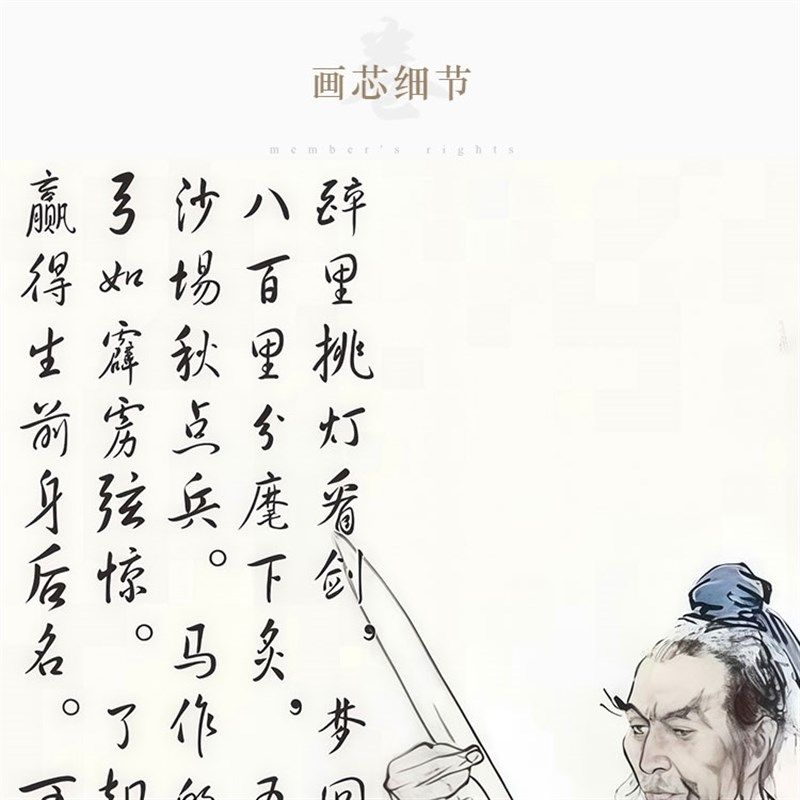 画芯细节
member's rights
醉里挑灯看剑，梦回
八百里分麾下炙，五
沙場秋点兵。马作的
弓如霹雳弦惊。了却
赢得生前身后名。